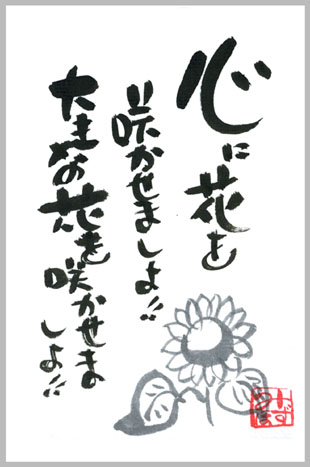 心に花を
咲かせましょ!!
大きな花を咲かせま
しょ!!